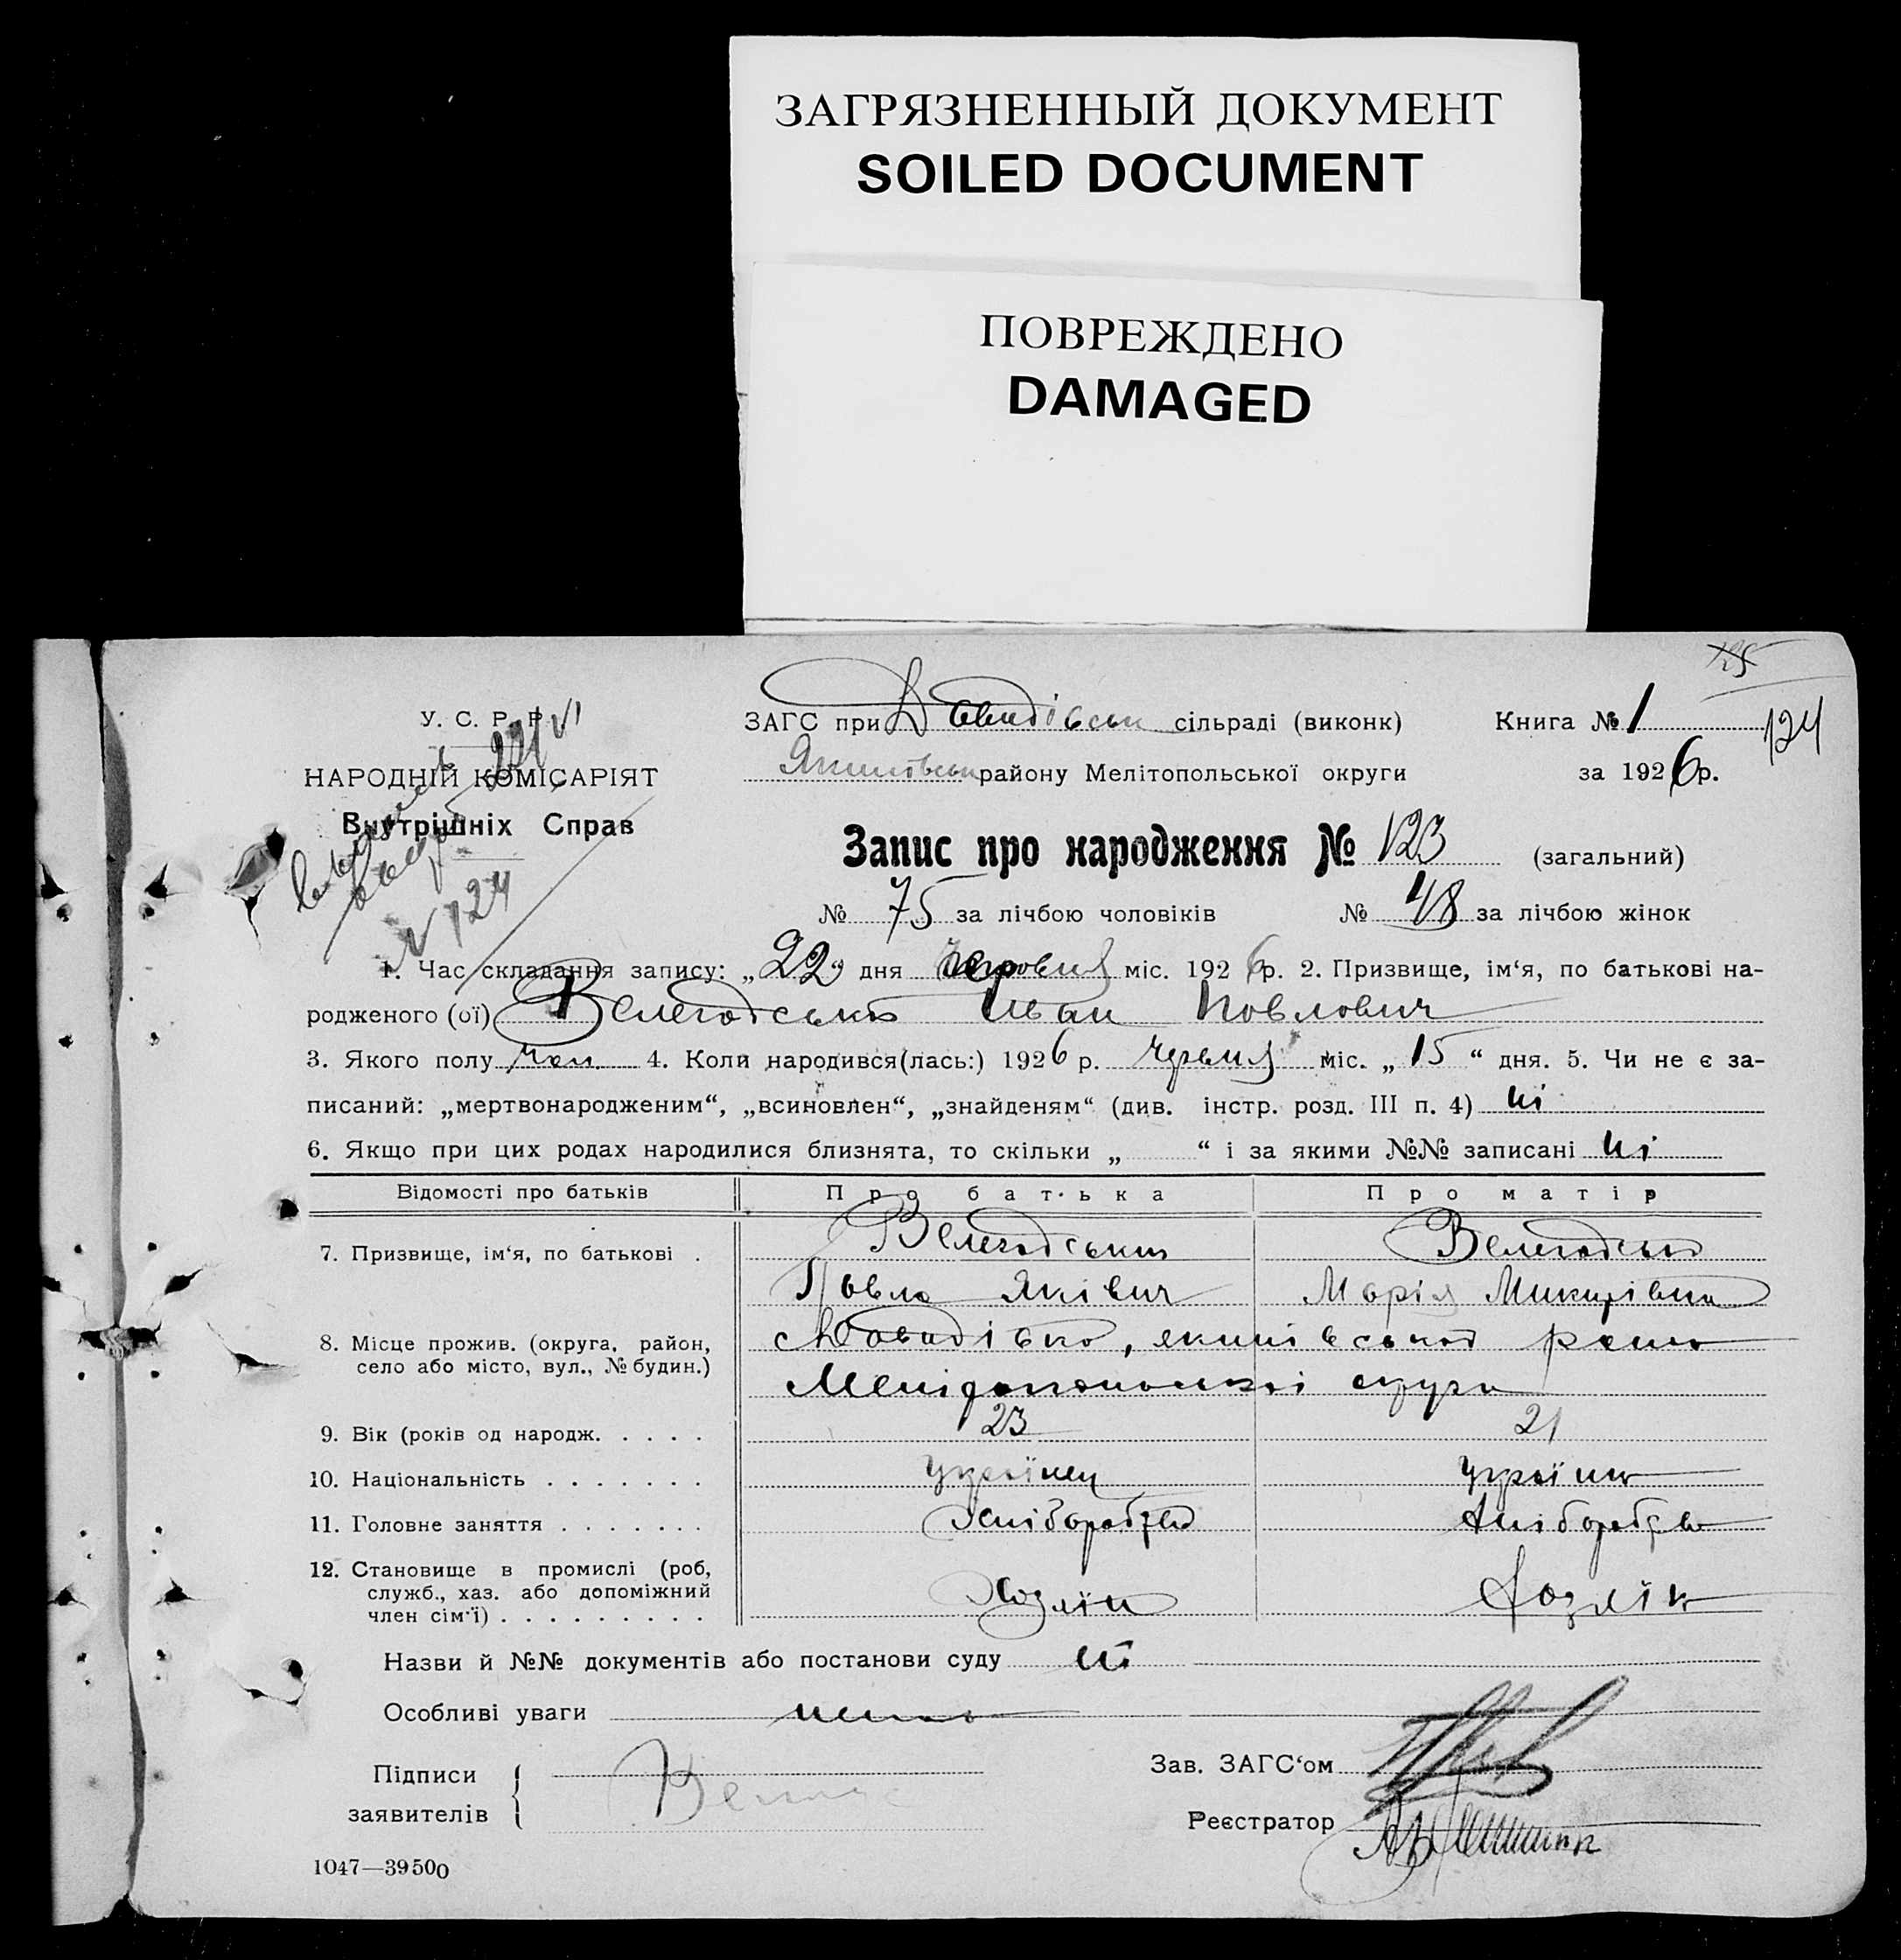 ЗАГРЯЗНЕННЫЙ ДОКУМЕНТ
SOILED DOCUMENT
ПОВРЕЖДЕНО
DAMAGED
125
124
У. С. Р. Р.
НАРОДНІЙ КОМІСАРІЯТ
Внутрішніх Справ
N 124
ЗАГС при Давидівськ сільраді (виконк) Книга № 1
Якимовськ району Мелітопольської округи за 1926 р.
Запис про народження № 123 (загальний)
№ 75 за лічбою чоловіків № 48 за лічбою жінок
1. Час складання запису: „22“ дня червня міс. 1926 р. 2. Призвище, ім‘я, по батькові на-
родженого (ої) Велегодський Іван Повлович
3. Якого полу чол. 4. Коли народився(лась:) 1926 р. червня міс. „15“ дня. 5. Чи не є за-
писаний: „мертвонародженим“, „всиновлен“, „знайденям“ (див. інстр. розд. III п. 4) ні
6. Якщо при цих родах народилися близнята, то скільки „ “ і за якими №№ записані ні
Відомості про батьків Про батька Про матір
7. Призвище, ім‘я, по батькові . Велегодський Велегодсько
Повло Яківич Морія Микитівна
8. Місце прожив. (округа, район,
село або місто, вул., № будин.)
Довидівко, якимівської
округи
9. Вік (років од народж. . . . . 23 21
10. Національність . . . . . . . Українец Україн
11. Головне заняття . . . . . . . Хліборобство Хліборобство
12. Становище в промислі (роб,
служб., хаз. або допоміжний
член сім‘ї) . . . . . . . . . Хозяїн Хозяїк
Назви й №№ документів або постанови суду ні
Особливі уваги нема
Підписи
заявителів
Зав. ЗАГС‘ом
Реєстратор
1047—39500